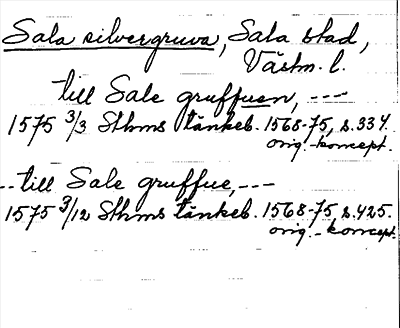 Sala silvergruva, Sala stad,
Västm. l.
till Sale gruffuen, ---
1575 3/3 Sthms tänkeb. 1568-75, s. 334.
orig.-koncept.
-- till Sale gruffue, ---
1575 3/12 Sthms tänkeb. 1568-75 s. 425.
orig.-koncept.